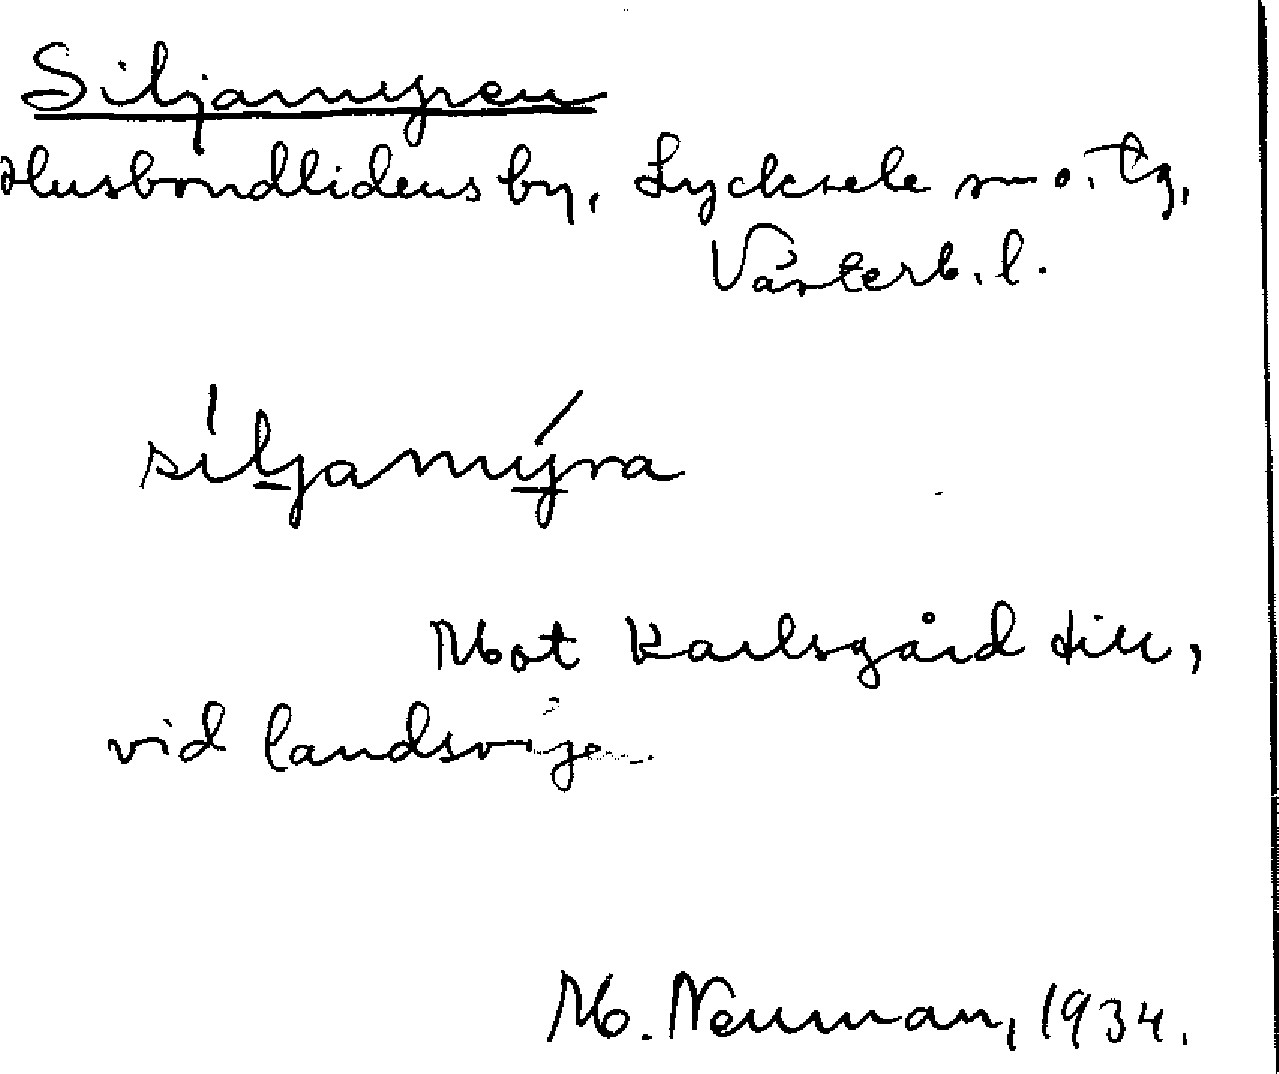 Siljamyren
Husbondlidens by, Lycksele sn o. tg,
Västerb. l.
síljamýra
Mot Karlsgård till,
vid landsvägen.
M. Neuman, 1934.